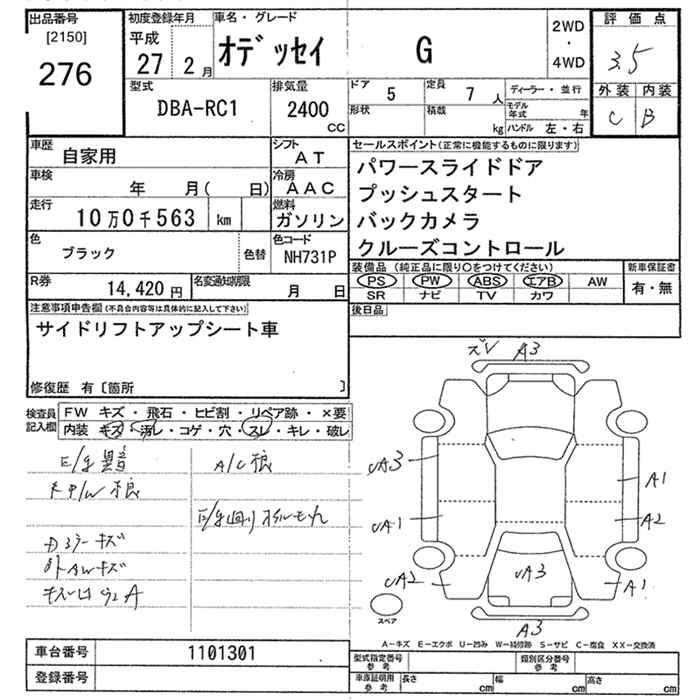 出品番号
[2150]
276
初度登録年月
平成
27 2 月
車名・グレード
オデッセイ G
2WD
・
4WD
評価点
3.5
外装 内装
C B
型式
DBA-RC1
排気量
2400
CC
ドア 5
定員 7 人
ディーラー・並行
形状
積載 kg
モデル年式 年
ハンドル 左・右
車歴 自家用
シフト AT
車検 年 月( 日)
冷房 AAC
走行 10万0千563 km
燃料 ガソリン
色 ブラック 色替
色コード NH731P
R券 14,420 円
名変通知期限 月 日
セールスポイント(正常に機能するものに限ります)
パワースライドドア
プッシュスタート
バックカメラ
クルーズコントロール
装備品 (純正品に限り〇をつけてください)
新車保証書
PS PW ABS エアB AW
有・無
SR ナビ TV カワ
後日品
注意事項申告欄(不具合内容等は具体的に記入して下さい)
サイドリフトアップシート車
修復歴 有〔箇所 〕
検査員記入欄
FW キズ・飛石・ヒビ割・リペア跡・×要
内装 キズ・汚レ・コゲ・穴・スレ・キレ・破レ
E/g異音
A/C浪
P/W浪
E/g回りオイルモレ
ドアミラーキズ
AWキズ
A3
UA3
A1
UA1
A2
UA2
UA3
A1
A3
スペア
A-キズ E-エクボ U-凹み W-補修跡 S-サビ C-腐食 XX-交換済
車台番号 1101301
登録番号
型式指定番号 参考
類別区分番号 参考
車庫証明用 参考
長さ cm
幅 cm
高さ cm